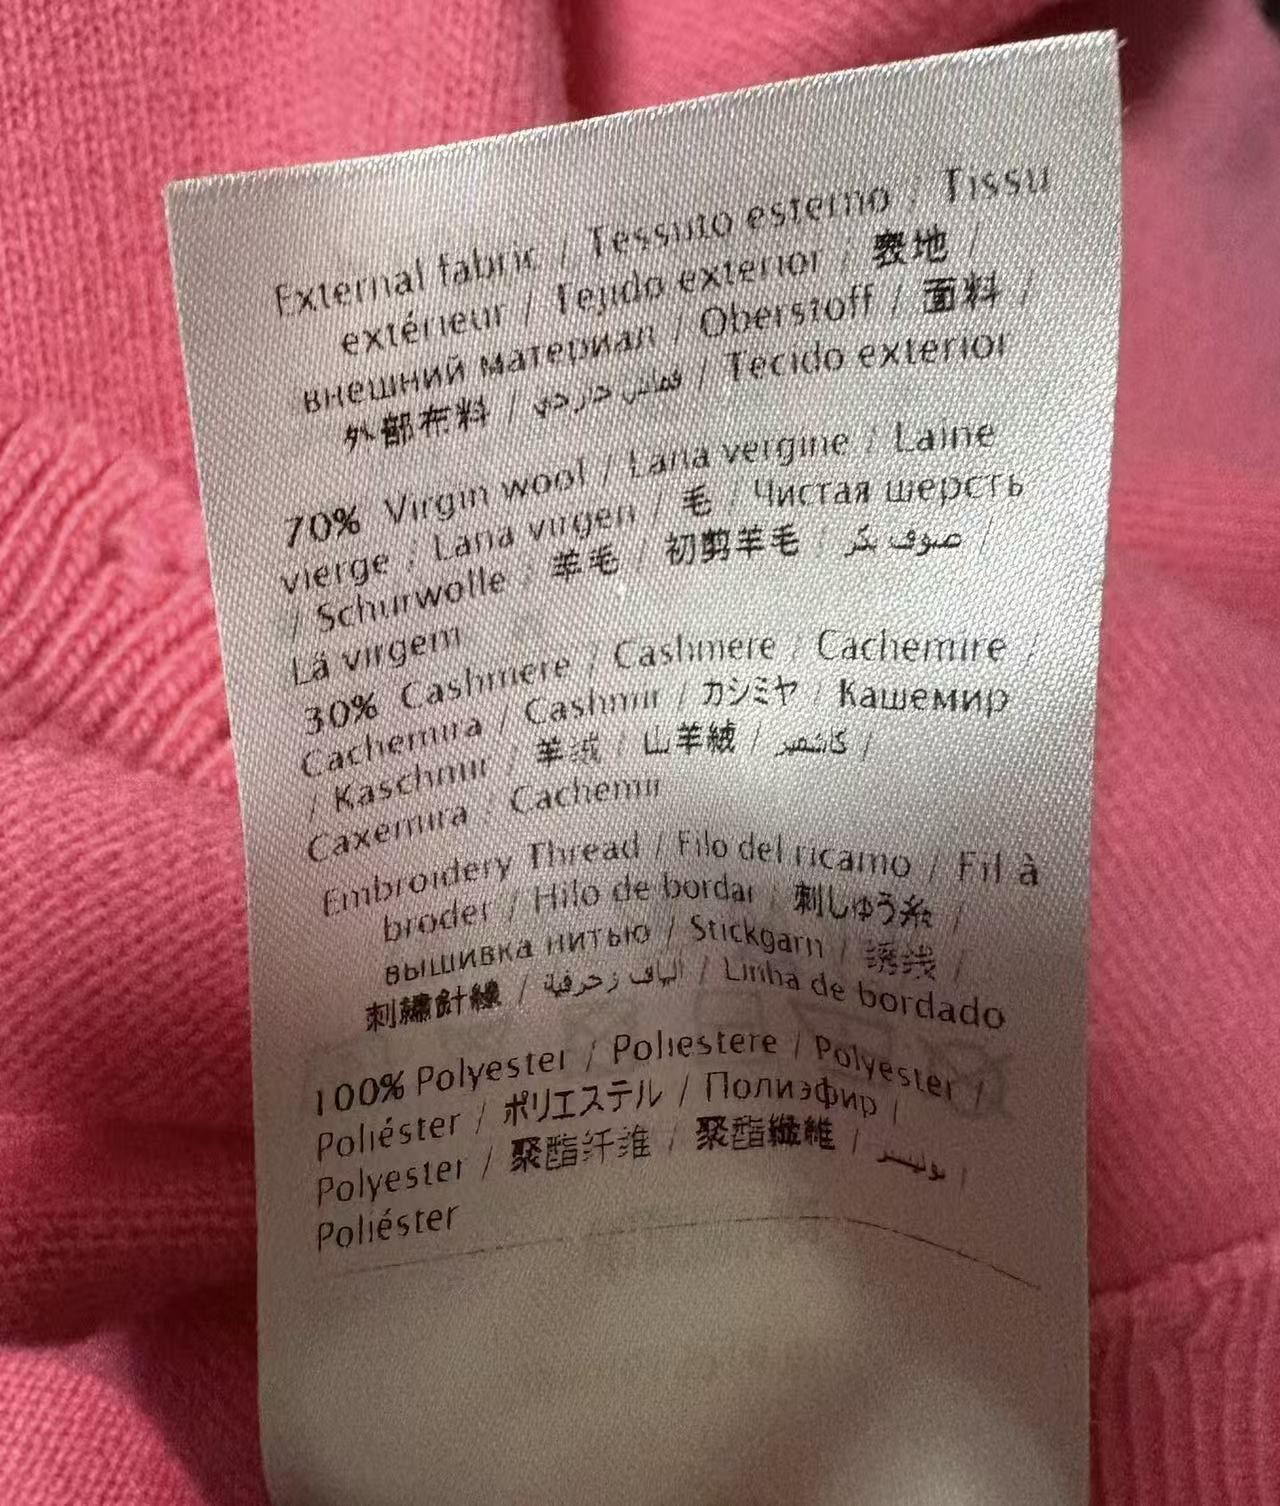 External fabric / Tessuto esterno / Tissu
extérieur / Tejido exterior / 表地 /
внешний материал / Oberstoff / 面料 /
外部布料 / قماش خارجي / Tecido exterior
70% Virgin wool / Lana vergine / Laine
vierge / Lana virgen / 毛 / Чистая шерсть
/ Schurwolle / 羊毛 / 初剪羊毛 / صوف بكر /
Lã virgem
30% Cashmere / Cashmere / Cachemire /
Cachemira / Cashmir / カシミヤ / Кашемир
/ Kaschmir / 羊绒 / 山羊絨 / كاشمير /
Caxemira / Cachemir
Embroidery Thread / Filo del ricamo / Fil à
broder / Hilo de bordar / 刺しゅう糸 /
вышивка нитью / Stickgarn / 绣线 /
刺繡針線 / الياف زخرفية / Linha de bordado
100% Polyester / Poliestere / Polyester /
Poliéster / ポリエステル / Полиэфир /
Polyester / 聚酯纤维 / 聚酯纖維 / بوليستر /
Poliéster